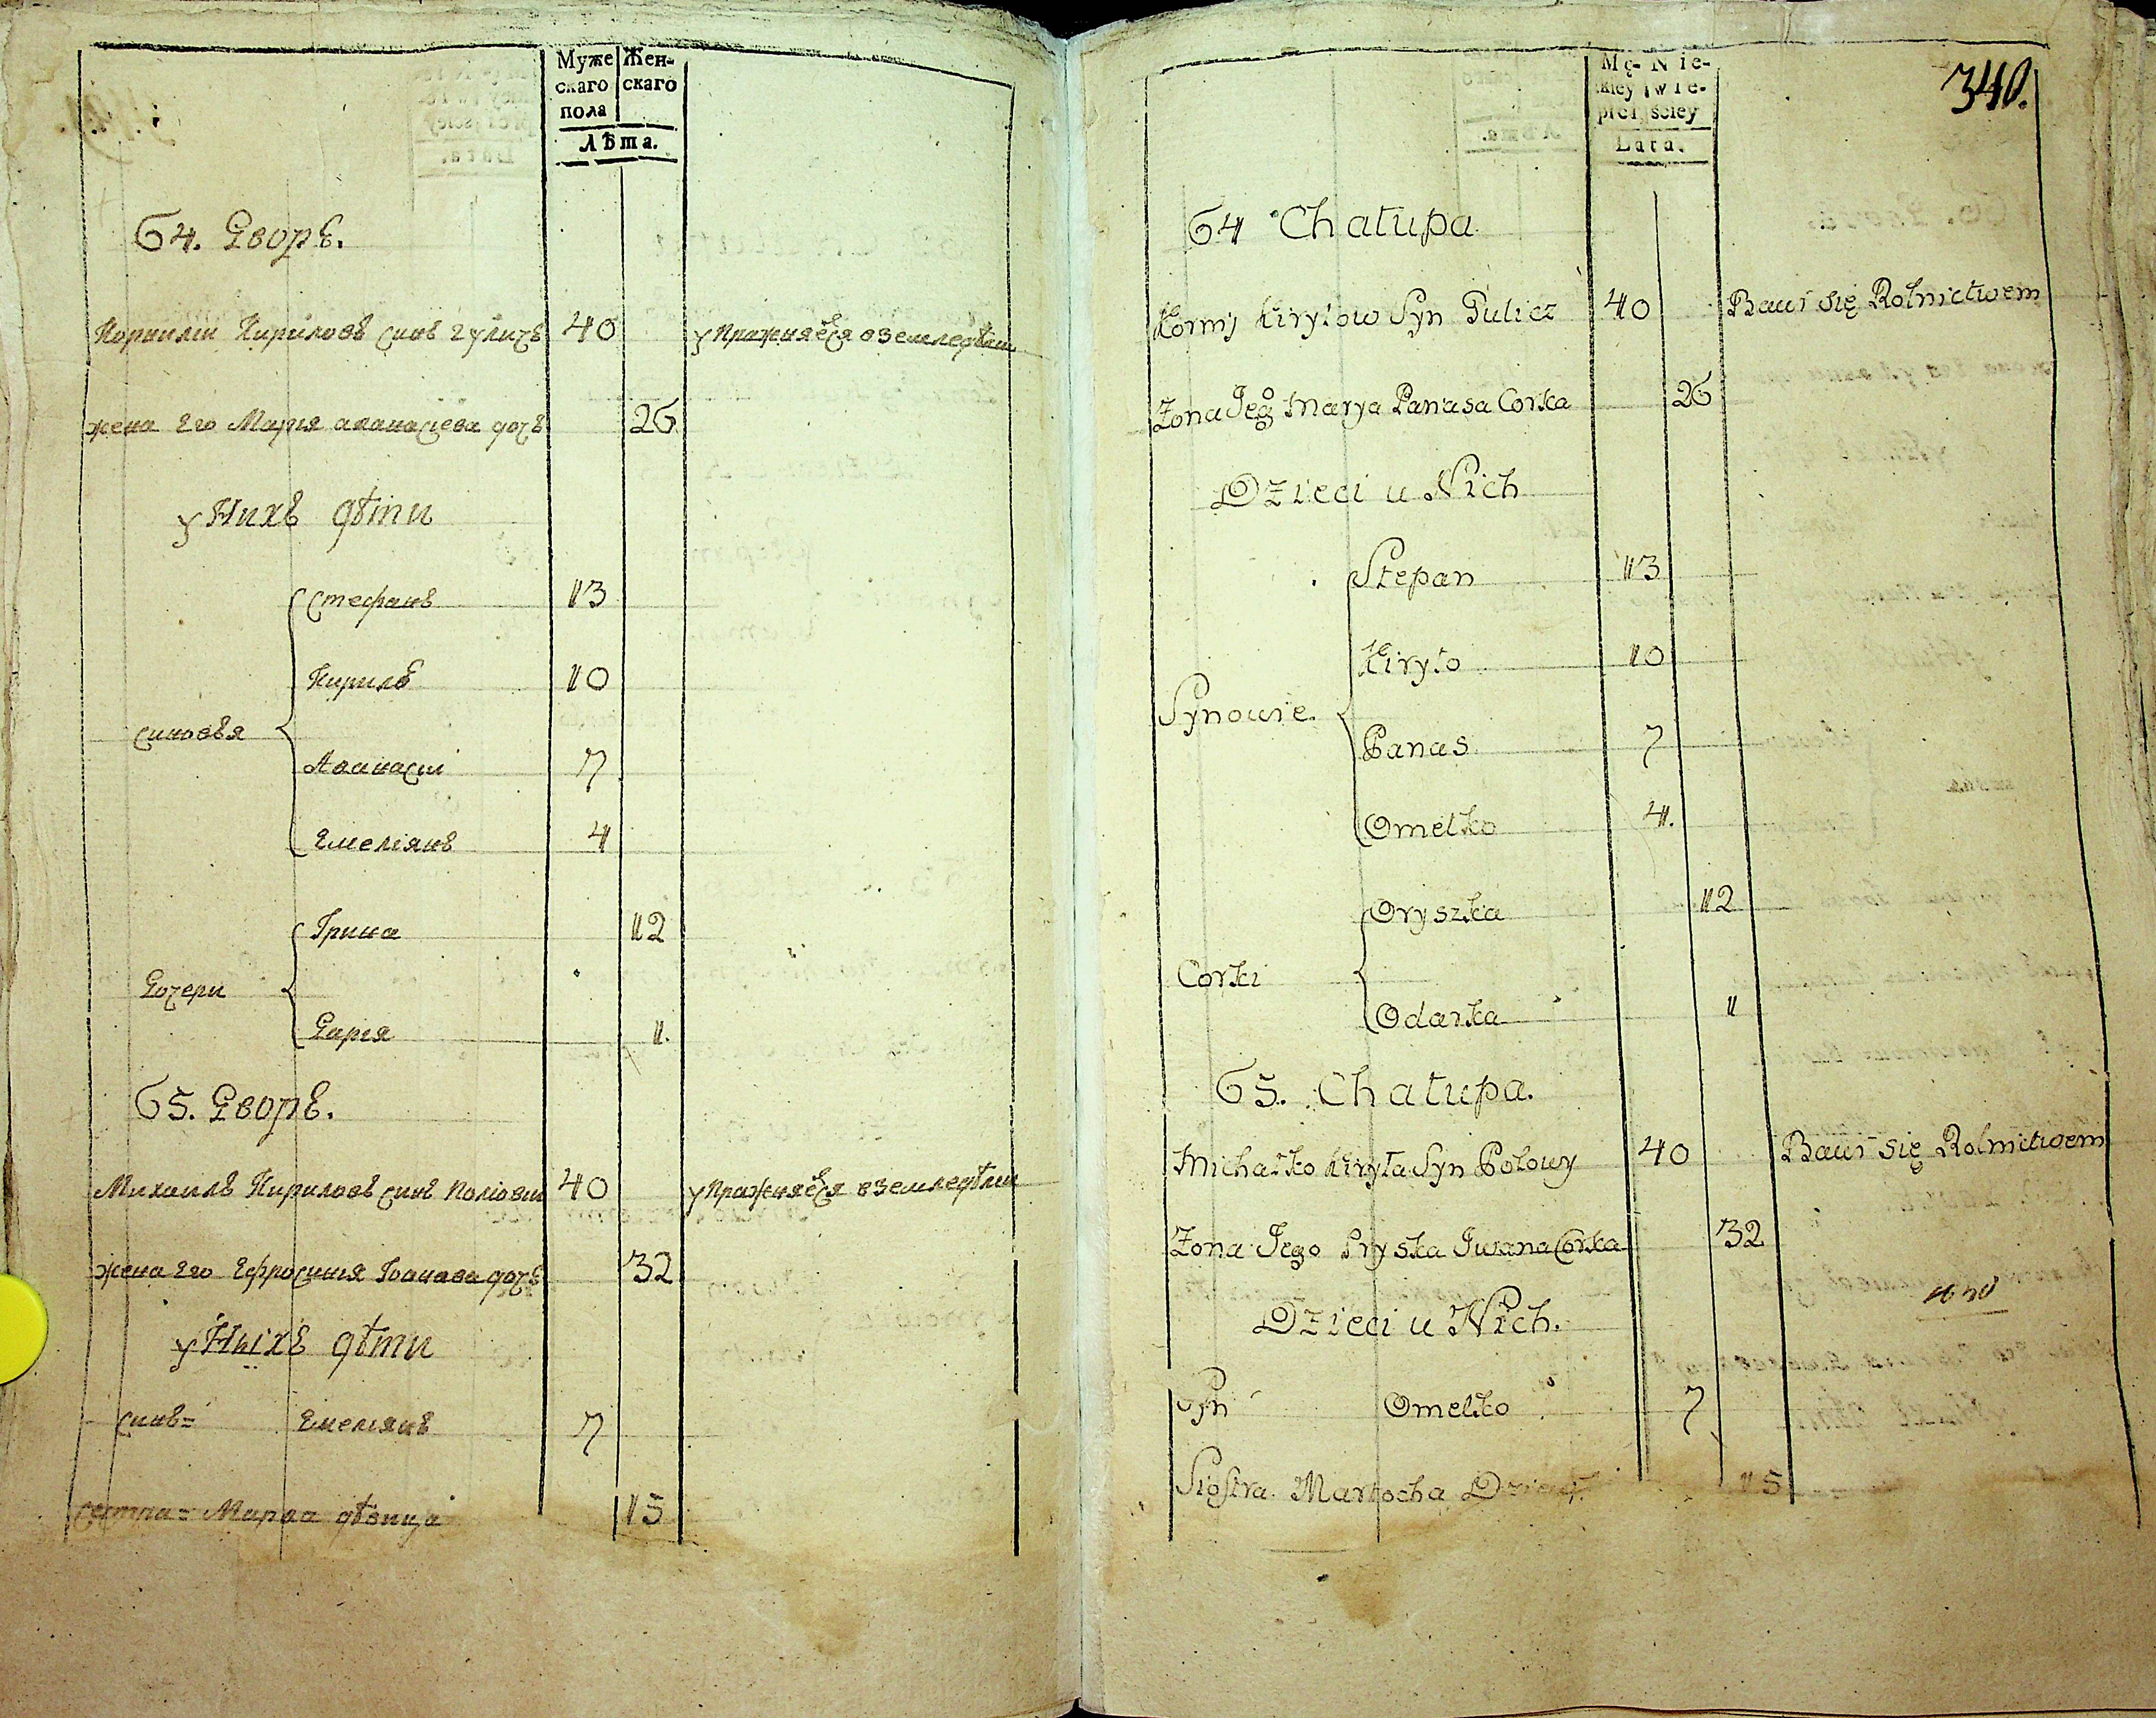 Муже Жен-
скаго скаго
пола
Лѣта.
64. Дворъ.
Корнилии Кириловъ синъ гуличъ 40 упражняется вземледѣлии
жена Его Мария аѳанасиева дочъ 26
у Нихъ дѣти
Стефанъ 13
Кирилъ 10
синовья
Аѳанасии 7
Емелианъ 4
Ірина 12
Дочери
Дария 1.
65. Дворъ.
Михаилъ Кириловъ синъ 40 упражняется вземледѣлии
жена Его Ефросиния Іоанова дочъ 32
у Ныхъ дѣти
синъ= Емелианъ 7
сестра= Марѳа дѣвица 15
340.
Mę- Nie-
skiey wie-
płci ściey
Lata.
64 Chałupa
Korniy Kiryłow Syn Gulicz 40 Bawi się Rolnictwem
Zona Jego Marya Panasa Corka 26
Dzieci u Nich
Stepan 13
Kiryło 10
Synowie.
Panas 7
Omelko 4.
Oryszka 12
Corki
Odarka 1
65. Chałupa.
Michałko Kiryła Syn Połowy 40 Bawi się Rolnictwem
Zona Jego Pryska Jwana Corka 32
Dzieci u Nich.
Syn Omelko 7
Siostra Martocha 15